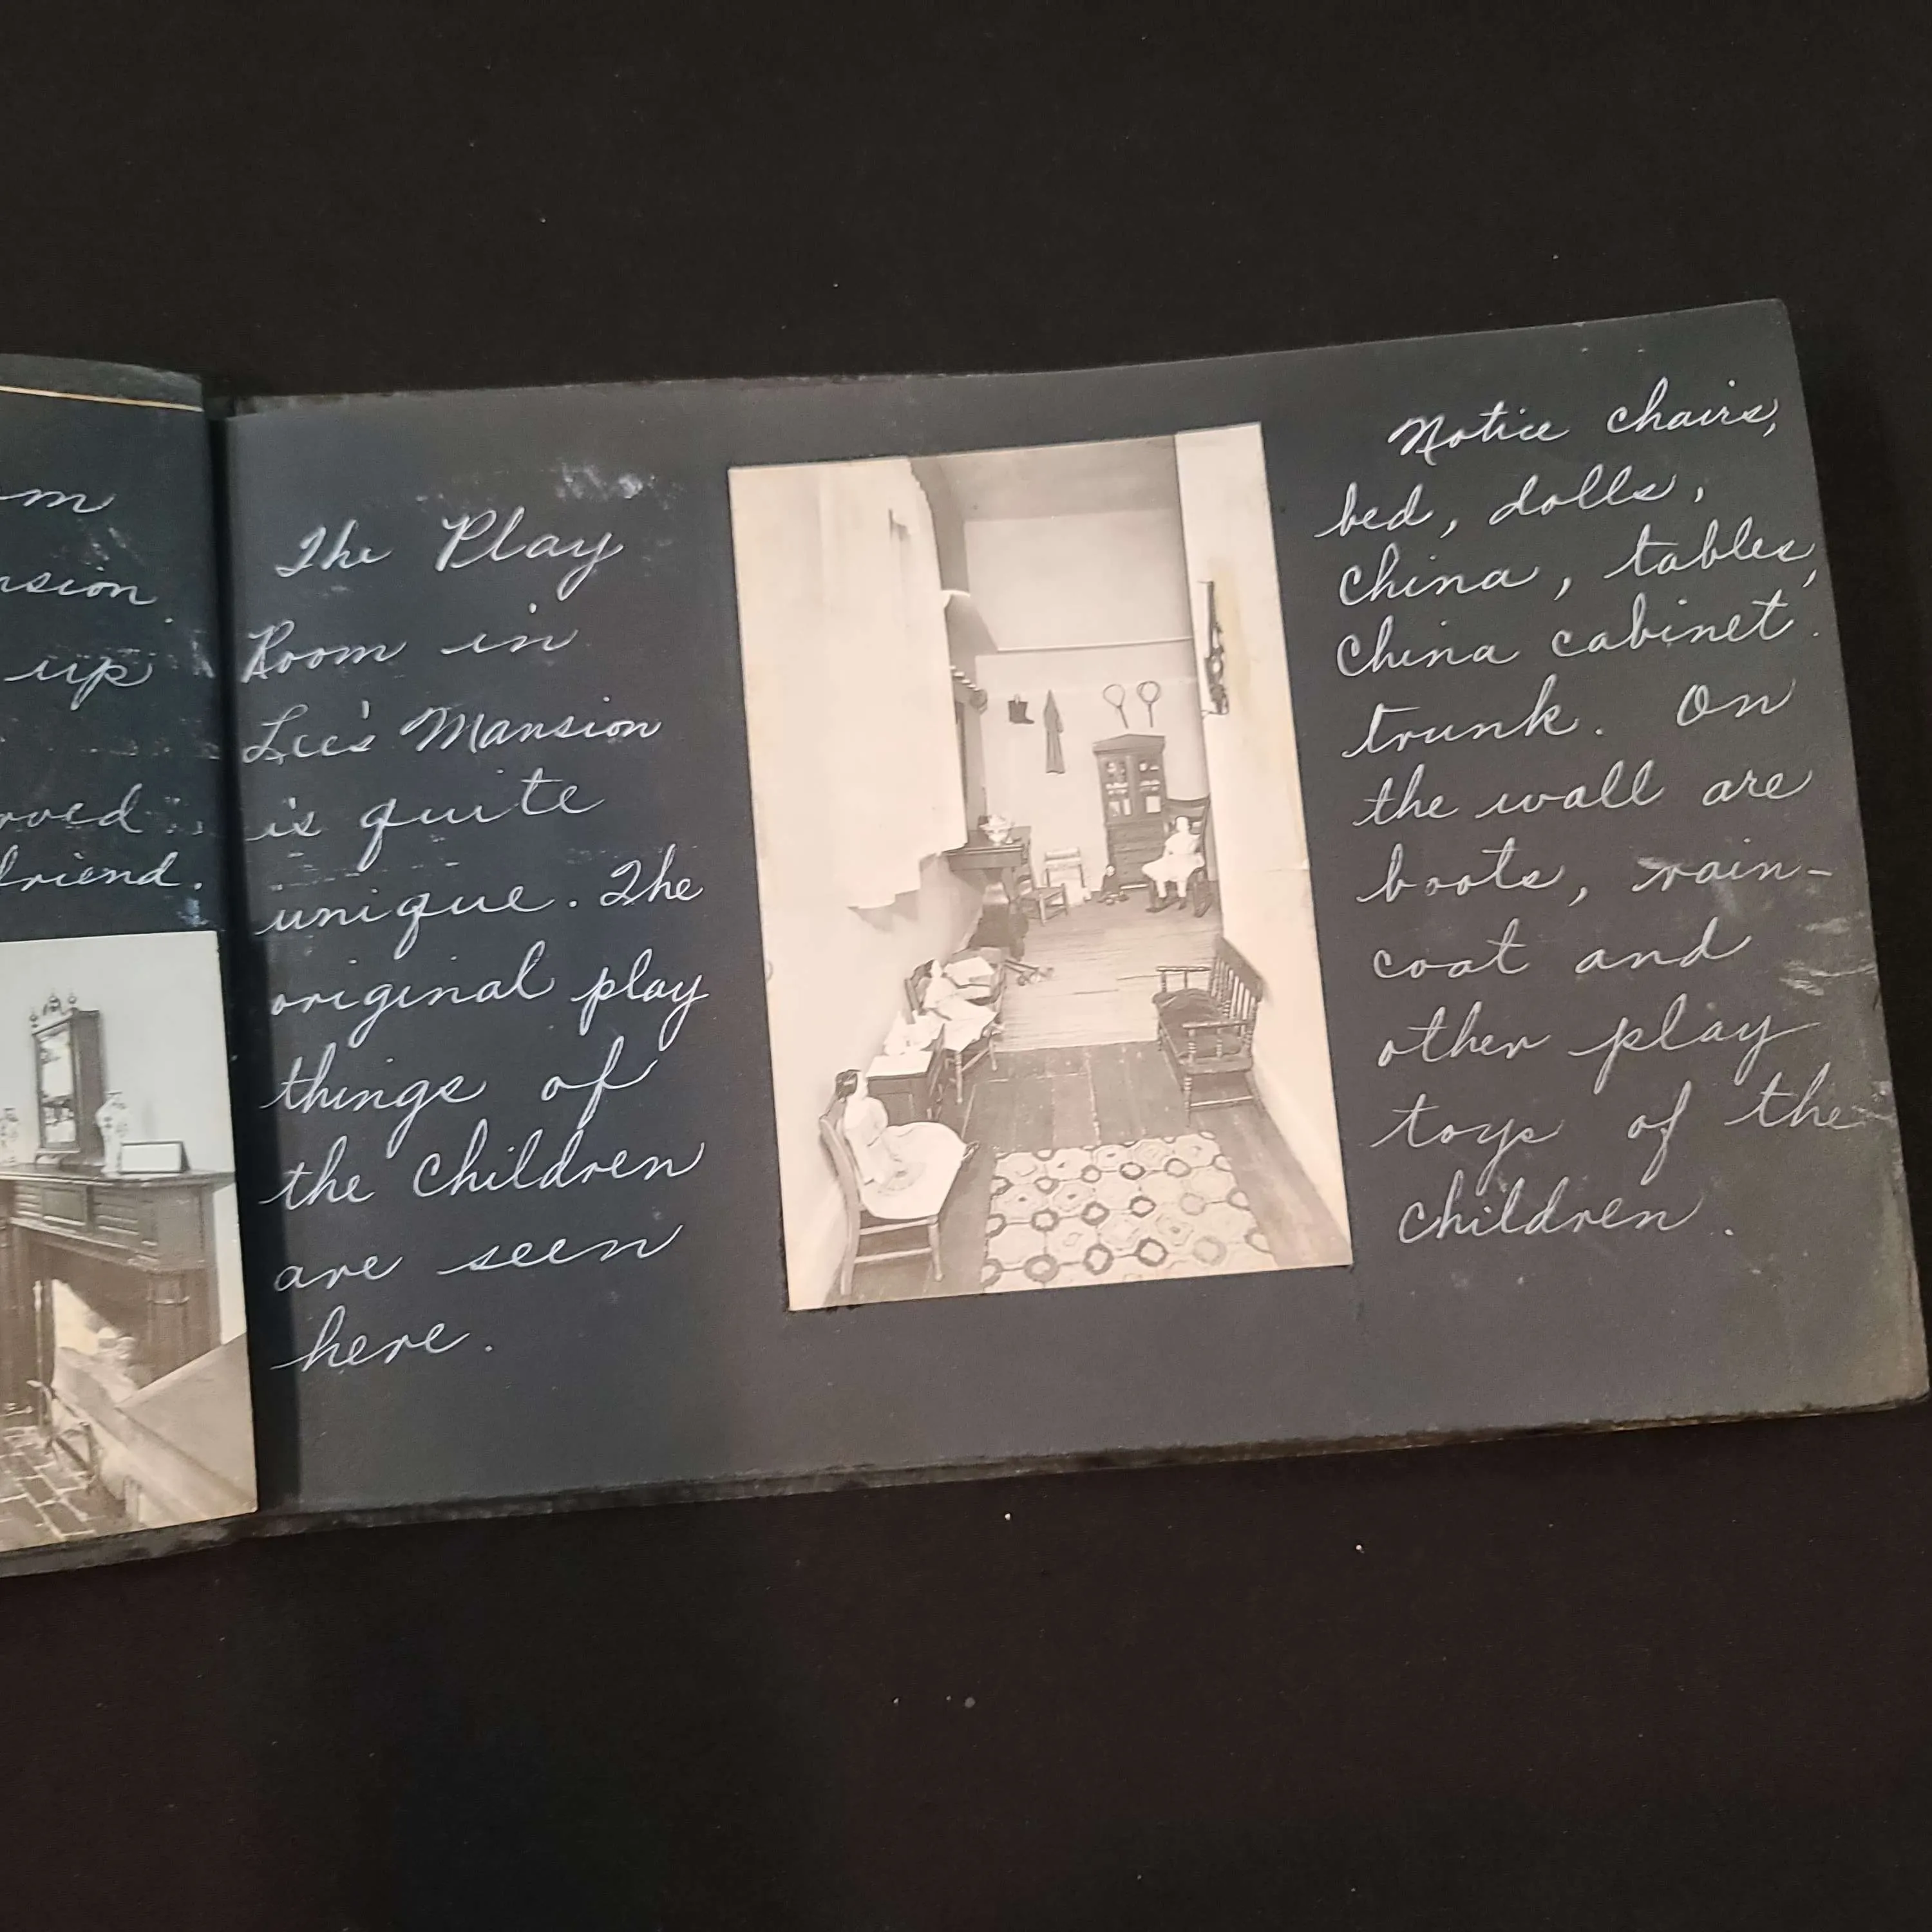 m
nsion
up
rved.
friend.
The Play
Room in
Lee's Mansion
is quite
unique. The
original play
things of
the children
are seen
here.
Notice chairs,
bed, dolls,
china, tables,
china cabinet.
trunk. On
the wall are
boots, rain-
coat and
other play
toys of the
children.